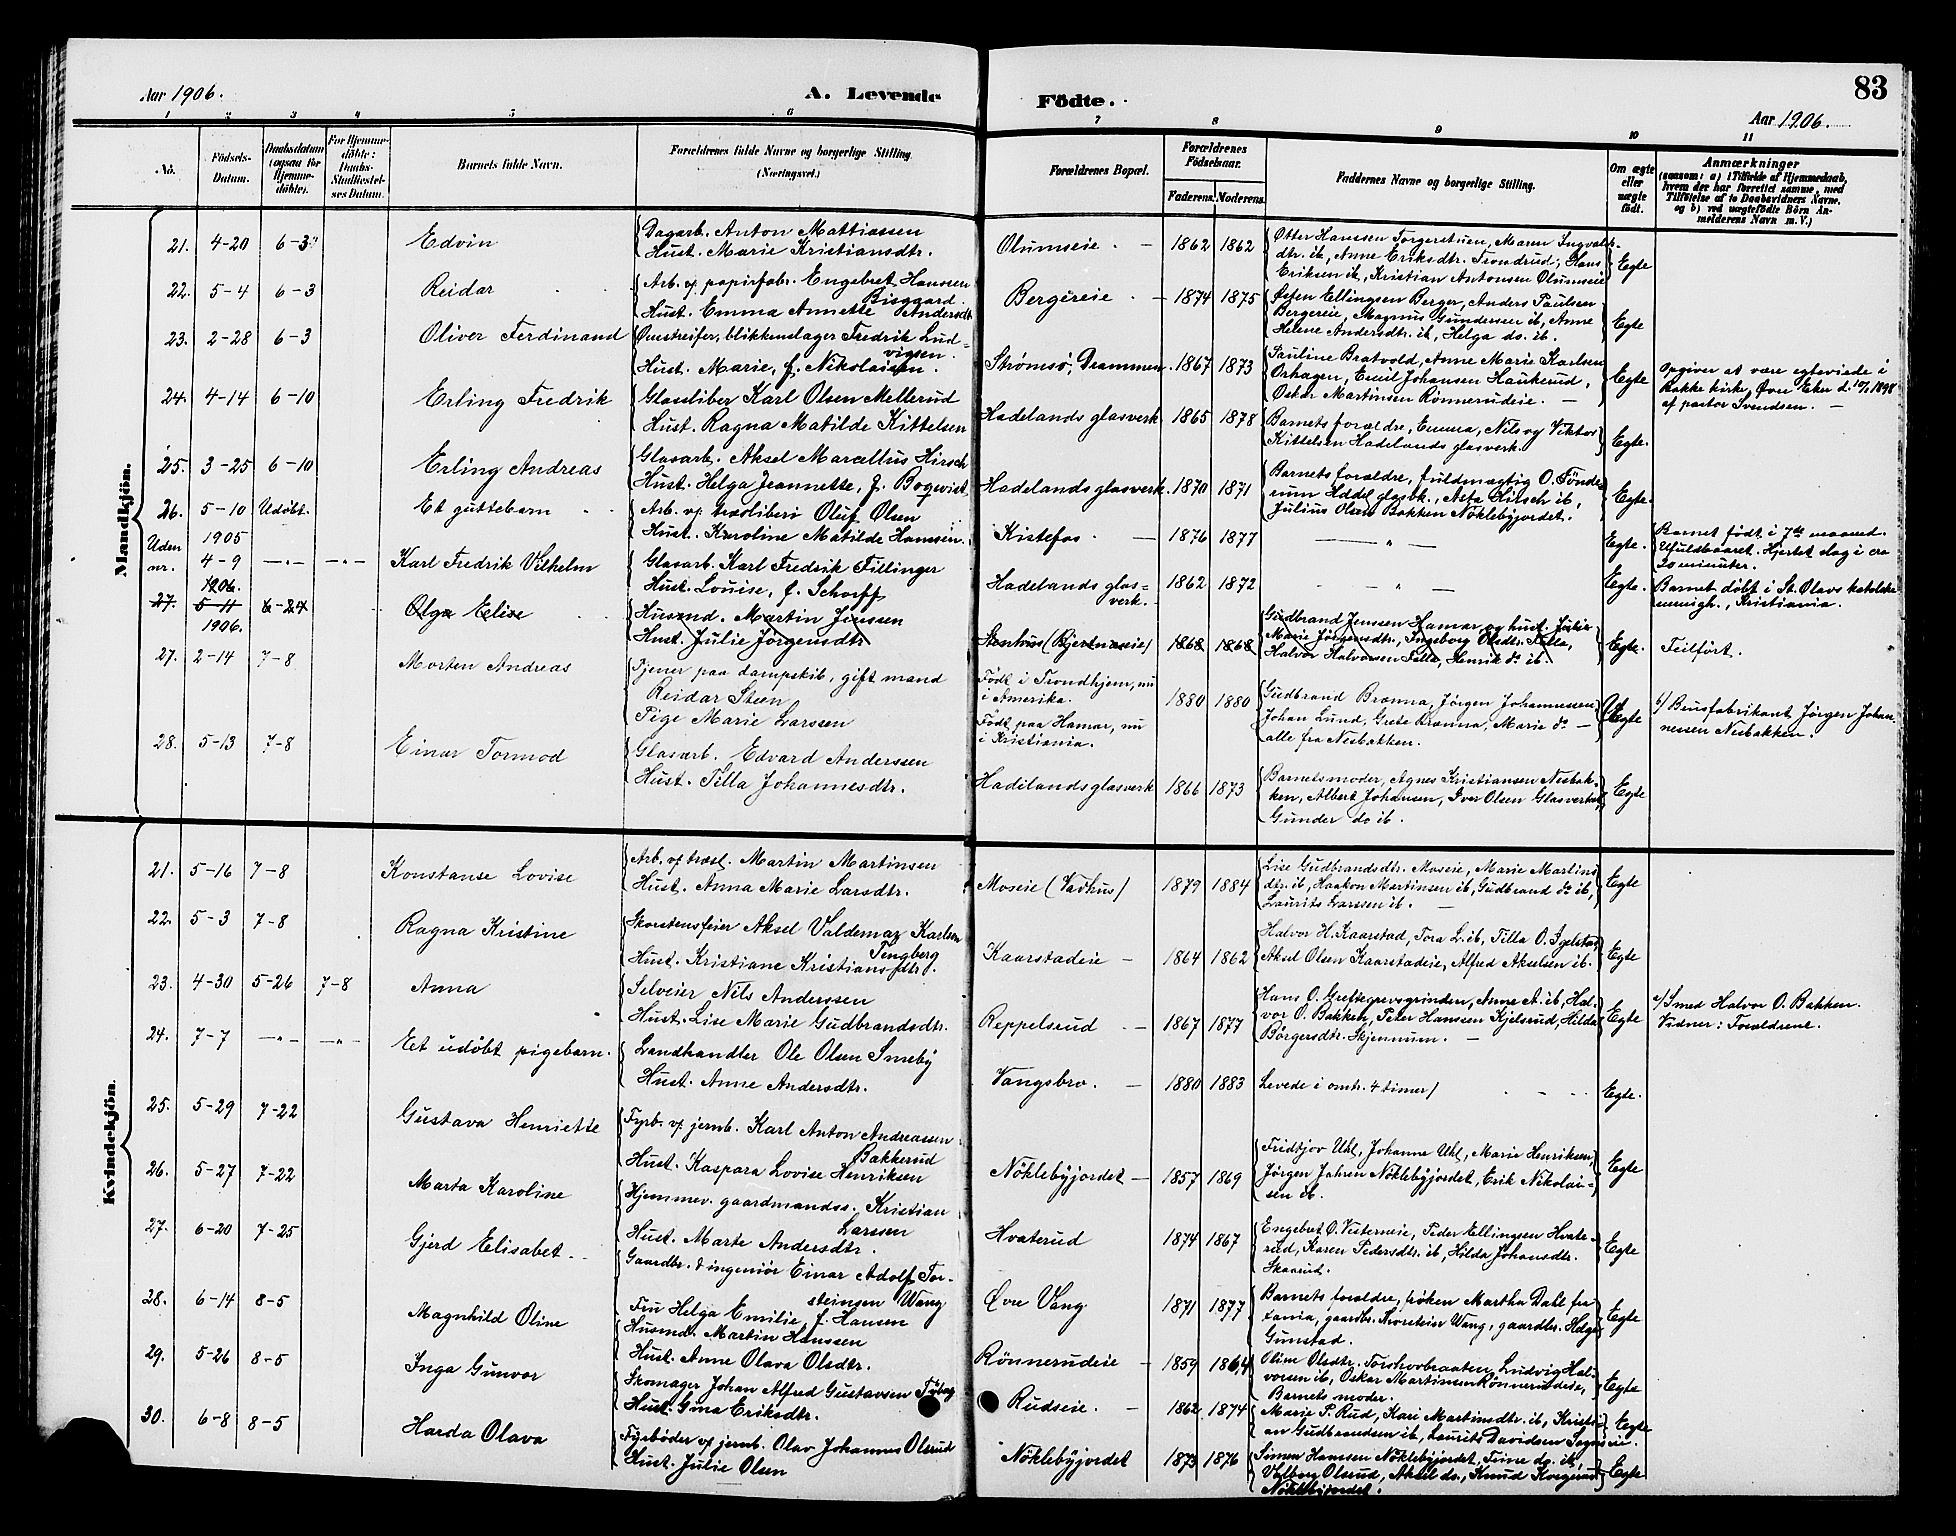 Aar 1906.
A. Levende
Födte.
83
Aar 1906.
1 2 3 4 5 6 7 8 9 10 11
No.
Födsels-
Datum.
Daabsdatum
(ogsaa for
Hjemme-
döbte).
For Hjemme-
döbte:
Daabs-
Stadfæstel-
ses Datum.
Barnets fulde Navn.
Forældrenes fulde Navne og borgerlige Stilling
(Næringsvei.)
Forældrenes Bopæl.
Forældrenes
Födselsaar.
Faderens. Moderens.
Faddernes Navne og borgerlige Stilling.
Om ægte
eller
uægte
født.
Anmærkninger
(saasom: a) i Tilfælde af Hjemmedaab,
hvem der har forrettet samme, med
Tilföielse af to Daabsvidners Navne,
og b) ved uægtefödte Börn An-
melderens Navn m. V.)
Mandkjön.
21. 4-20 6-3 Edvin
Dagarb. Anton Mattiassen
Hust. Marie Kristiansdtr.
Olumseie. 1862 1862
Otter Hanssen Torgerstuen, Maren Ingvalds-
dtr. ib, Anne Eriksdtr. Trondrud, Hans
Eriksen ib, Kristian Antonsen Olumseie
Egte
22. 5-4 6-3 Reidar
Arb. v. papirfabr. Engebret Hansen
Bisggard.
Hust. Emma Annette Andersdt.
Bergereie. 1874 1875
Ellingsen Berger, Anders Paulsen
Bergereie, Magnus Gundersen ib, Anne
Helene Andersdtr. ib, Helga do. ib.
Egte
23. 2-28 6-3 Oliver Ferdinand
Omstreifer, blikkenslager Fredrik Lud-
vigsen.
Hust. Marie, f. Nikolaisen.
Strømsö, Drammen. 1867 1873
Pauline Bratvold, Anne Marie Karlsen
Orhagen, Emil Johansen Haukerud,
Oskar Martinsen Rønnerudeie.
Egte
Opgiver at være egteviede i
Bakke kirke, Øvre Eker d. 1898
af pastor Svendsen.
24. 4-14 6-10 Erling Fredrik
Glassliber Karl Olsen Mellerud
Hust. Ragna Matilde Kittelsen
Hadelands glasverk 1865 1878
Barnets forældre, Emma, Nils og Viktor
Kittelsen Hadelands glasverk.
Egte.
25. 3-25 6-10 Erling Andreas
Glasarb. Aksel Marcellus Hirsch
Hust. Helga Jeannette, f. Boqvist
Hadelands glasverk. 1870 1871
Barnets forældre, fuldmægtig O. Tönde-
rum Hddl glasvk., Asta Hirsch ib,
Julius Olsen Bakken Nöklebyjordet.
Egte.
26. 5-10 Udöbt. Et guttebarn
Arb. v. træsliberi Oluf Olsen
Hust. Karoline Matilde Hansen.
Kistefos. 1876 1877
— „ —
Egte.
Barnet født i 7de maaned.
Ufuldbaaret. Hjertet slog i ca
minutter.
Uden
nr.
1905
4-9 —„— —„— Karl Fredrik Vilhelm
Glasarb. Karl Fredrik Fillinger
Hust. Louise, f. Schorff
Hadelands glas-
verk. 1862 1872
— „
Egte.
Barnet döbt i St. Olavs katolske
menigh., Kristiania.
1906.
27. 5-11 6-24 Olga Elise
Husmd. Martin Jenssen
Hust. Julie Jörgensdtr
Stenhus (Bjertneseie) 1868 1868
Gudbrand Jenssen Hamar og hust. Julie
Marie Jörgensdtr, Ingeborg Olsdtr. Tella,
Halvor Halvorsen Tella, Henrik do ib.
Egte. Feilført.
1906.
27. 2-14 7-8 Morten Andreas
Tjener paa dampskib, gift mand
Reidar Steen
Pige Marie Larssen
Født i Trondhjem, nu
i Amerika.
Født paa Hamar, nu
i Kristiania.
1880 1880
Gudbrand Brænna, Jörgen Johannessen,
Johan Lund, Grete Brænna, Marie do
alle fra Nesbakken.
Uegte
b/ Brusfabrikant Jörgen Johan-
nessen Nesbakken.
28. 5-13 7-8 Einar Tormod
Glasarb. Edvard Anderssen
Hust. Tilla Johannesdtr.
Hadelands glasverk 1866 1873
Barnets moder, Agnes Kristiansen Nesbak-
ken, Albert Johansen, Iver Olsen Glasverket,
Gunder do ib.
Egte
Kvindekjön.
21. 5-16 7-8 Konstanse Lovise
Arb. v. træsl. Martin Martinsen
Hust. Anna Marie Larsdtr.
Moseie (Vadhus) 1879 1884
Lise Gudbrandsdtr. Moseie, Marie Martins-
dtr. ib, Haakon Martinsen ib, Gudbrand do ib,
Laurits Larssen ib.
Egte
22. 5-3 7-8 Ragna Kristine
Skorstensfeier Aksel Valdemar Karlsen
Tengberg
Hust. Kristiane Kristiansdtr.
Kaarstadeie 1864 1862
Halvor H. Kaarstad, Tora L. ib, Tilla O. Igelstad,
Aksel Olsen Kaarstadeie, Alfred Akselsen ib.
Egte
23. 4-30 5-26 7-8 Anna
Selveier Nils Anderssen
Hust. Lise Marie Gudbrandsdtr.
Reppelsrud 1867 1877
Hans O. Greftegrevsgrinden, Anne A. ib, Hal-
vor O. Bakken, Peter Hanssen Kjelsrud, Hilda
Börgersdtr. Skjennum.
Egte
a/ Smed Halvor O. Bakken.
Vidner: Forældrene.
24. 7-7 —„— —„— Et udöbt pigebarn.
Landhandler Ole Olsen Smeby
Hust. Anne Andersdtr.
Vangsbro. 1880 1883
Levede i omtr. 4 timer/
Egte.
25. 5-29 7-22 Gustava Henriette
Fyrb. v. jernb. Karl Anton Andreassen
Bakkerud
Hust. Kaspara Lovise Henriksen
Nöklebyjordet 1857 1869
Fridtjov Uhl, Johanne Uhl, Marie Henriksen,
Jörgen Jahren Nöklebyjordet, Erik Nikolai-
sen ib.
Egte
26. 5-27 7-22 Marta Karoline
Hjemmev. gaardmandss. Kristian
Larssen
Hust. Marte Andersdtr.
Hvaterud 1874 1867
Engebret O. Vesterneie, Peder Ellingsen Hvate-
rud, Karen Pedersdtr. ib, Hilda Johansdtr.
Skaarud.
Egte
27. 6-20 7-25 Gjerd Elisabet
Gaardbr. & ingeniör Einar Adolf Tor-
steinsen Wang
Fru Helga Emilie, f. Hansen
Øvre Vang 1871 1877
Barnets forældre, frøken Martha Dahl fra
tania, gaardbr. Thorstein Wang, gaardbr. Helge
Gunstad.
Egte
28. 6-14 8-5 Magnhild Oline
Husmd. Martin Hanssen
Hust. Anne Olava Olsdtr.
Rönnerudeie 1859 1864
Oline Olsdtr. Torshovbraaten, Ludvig Hal-
vorsen ib, Oskar Martinsen Rönnerudeie,
Barnets moder.
Egte
29. 5-26 8-5 Inga Gunvor
Skomager Johan Alfred Gustavsen
Hust. Gina Eriksdtr.
Rudseie. 1862 1874
Marie P. Rud, Kari Martinsdtr. ib, Kristi-
an Gudbrandsen ib, Laurits Davidsen
Egte
30. 6-8 8-5 Harda Olava
Fyrböder v. jernb. Olav Johannes Olsrud
Hust. Julie Olsen
Nöklebyjordet 1873 1876
Simen Hanssen Nöklebyjordet, Trine do. ib,
Valborg Olsrud, Aksel do., Knud
Nöklebyjordet.
Egte